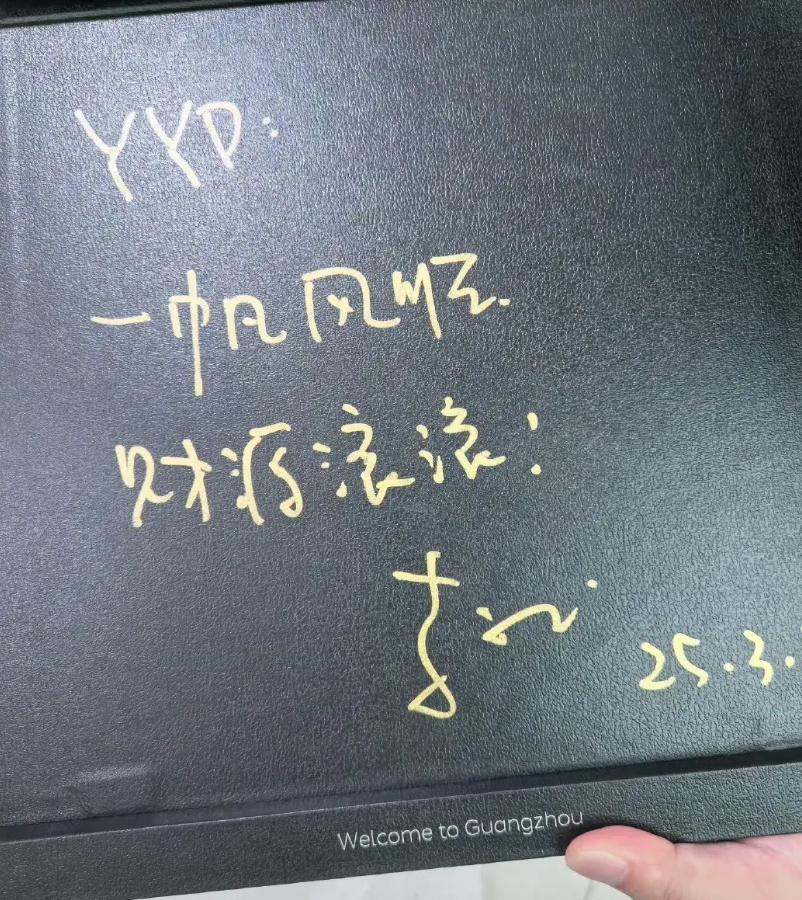 YYD:
一帆风顺.
财源滚滚!
25.3.
Welcome to Guangzhou